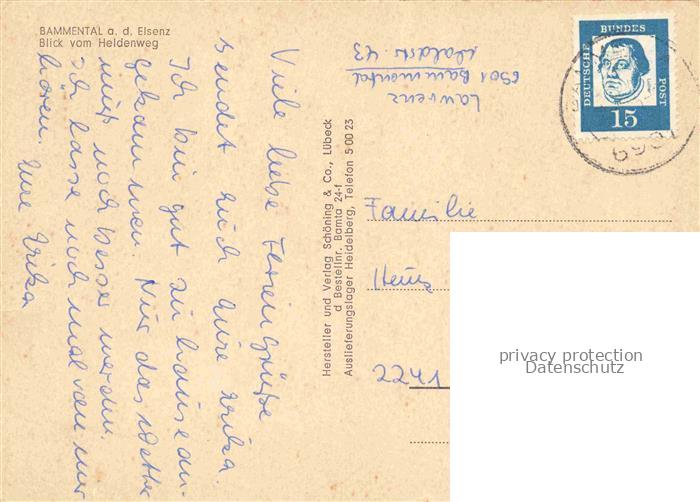 BAMMENTAL a. d. Elsenz
Blick vom Heldenweg
Viele liebe Feriengrüße
sendet euch eure Erika.
Ich bin gut zu hause an-
gekommen. Nur das Wetter
muß noch besser werden.
Ich lasse noch mal von mir
hören. Eure Erika
Hersteller und Verlag Schöning & Co., Lübeck
d Bestellnr. Bamta 24-f
Auslieferungslager Heidelberg, Telefon 5 00 23
Lawrenz
6901 Bammental
Waldstr. 43
DEUTSCHE
BUNDES
POST
15
6901
Familie
Heinz
2241
privacy protection
Datenschutz